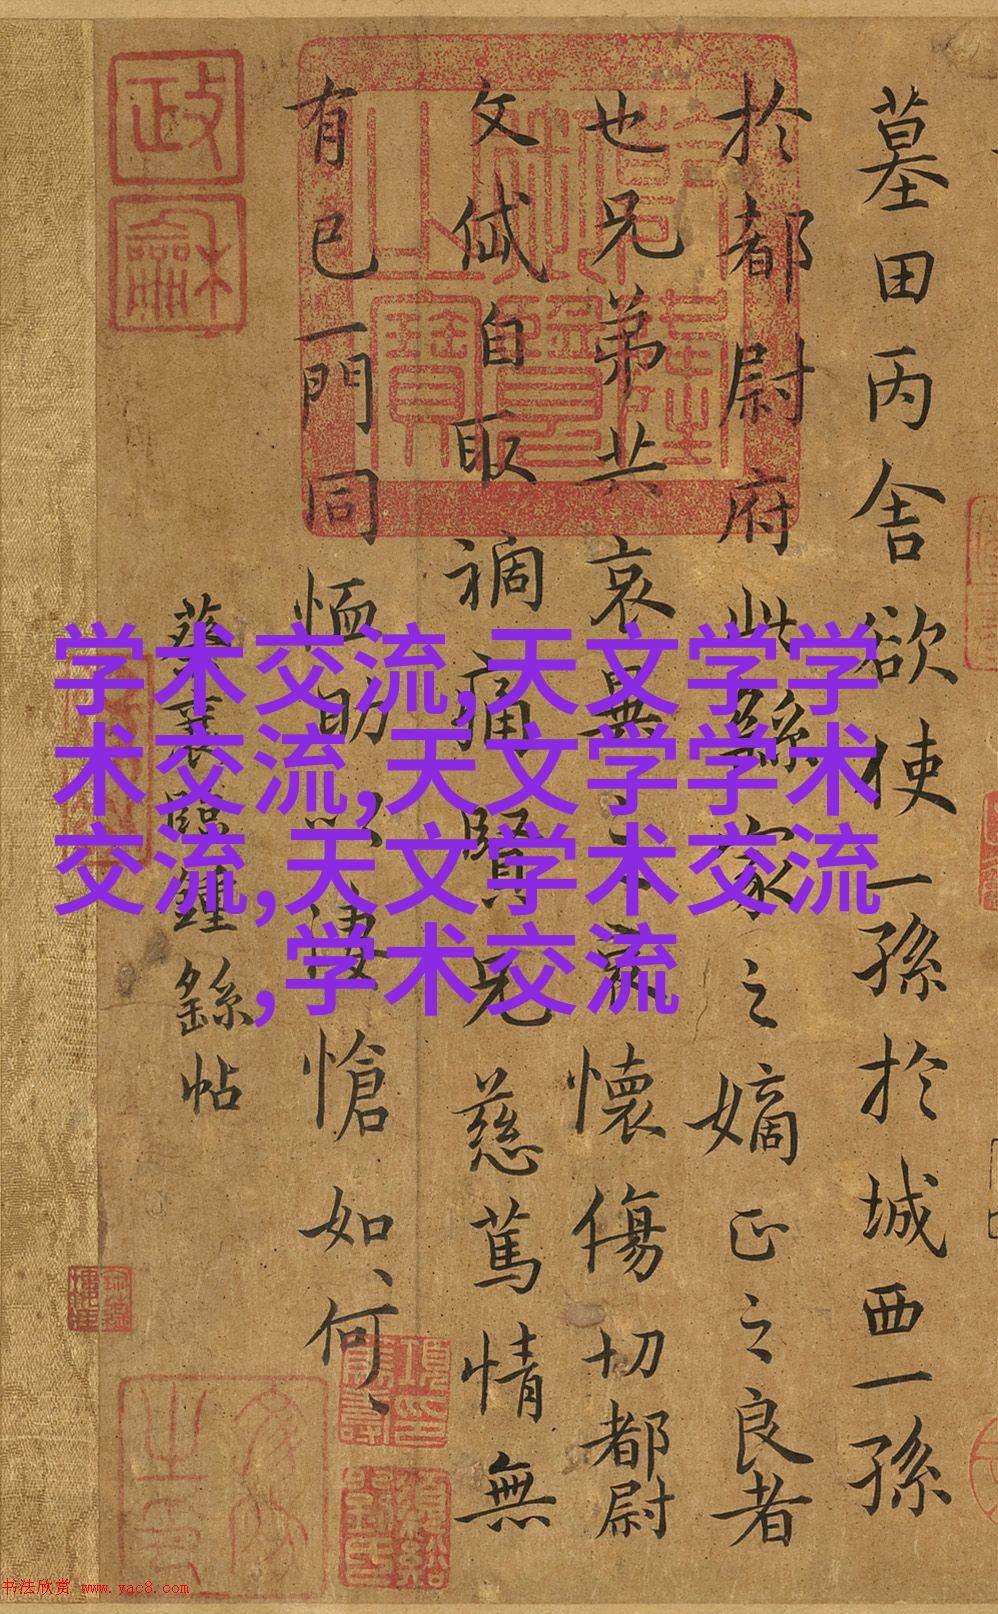 墓田丙舍欲使一孫於城西一孫
於都尉府此繇家之嫡正之良者
也兄弟共哀異之哀懷傷切都尉
文岱自取禍痛賢兄慈篤情無
有已一門同恤助以悽愴如何
蔡襄臨鍾繇帖
政龢
学术交流,天文学学
术交流,天文学学术
交流,天文学术交流
,学术交流
书法欣赏 www.yac8.com